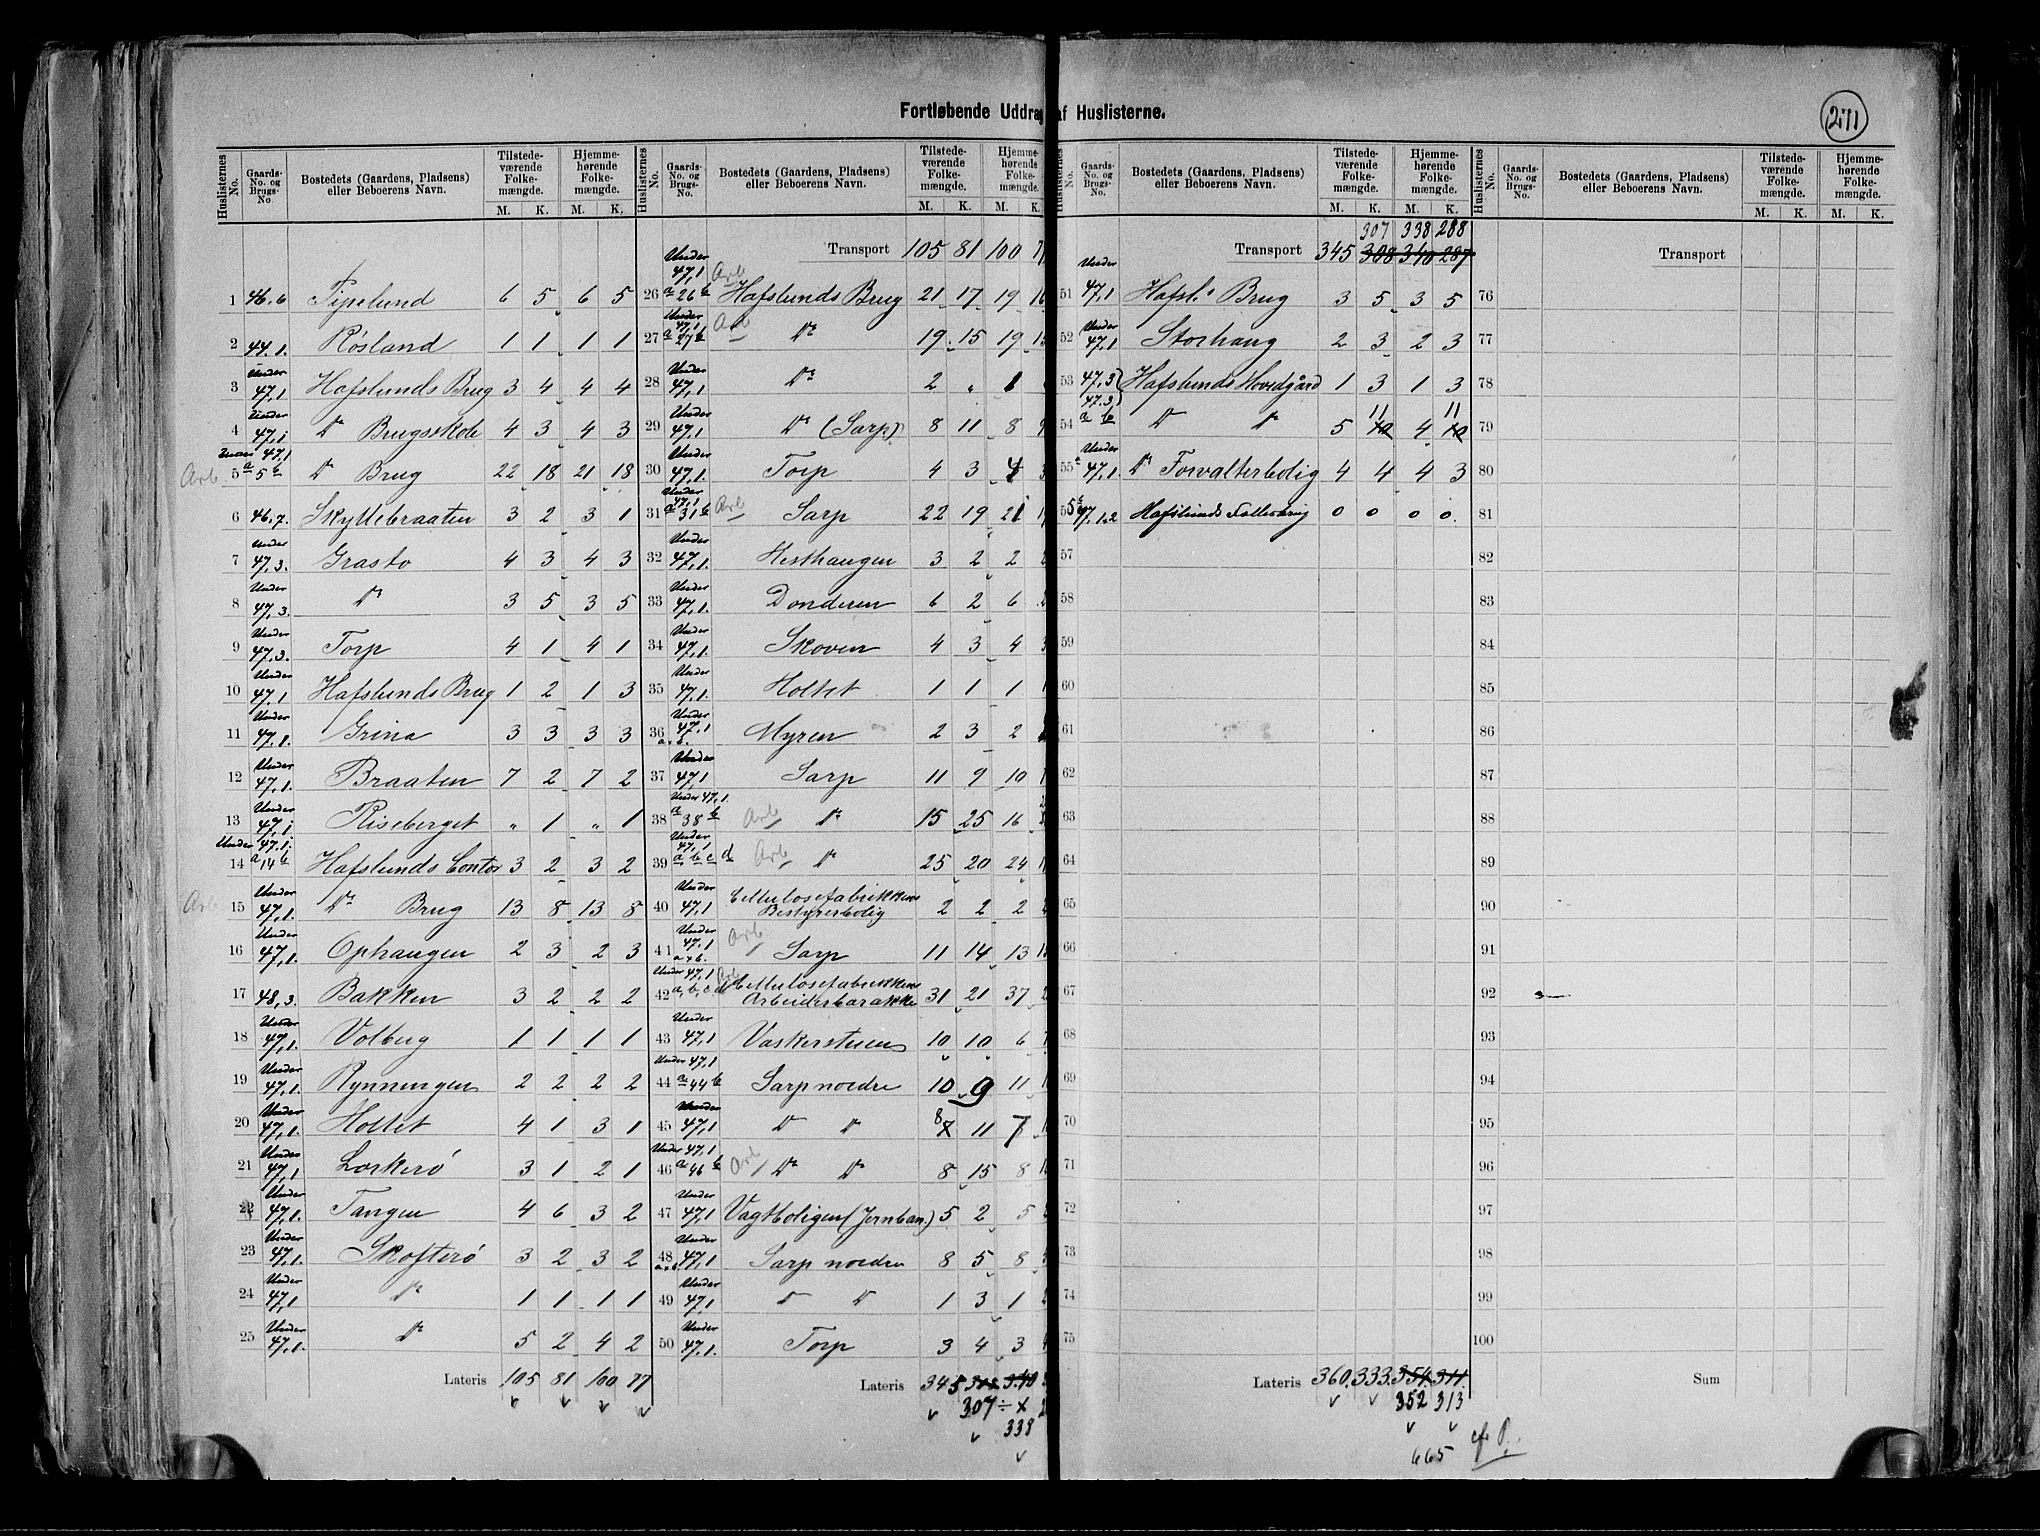 Fortløbende Uddrag af Huslisterne.
271
Huslisternes No. Gaards-No. og Brugs-No Bostedets (Gaardens, Pladsens) eller Beboerens Navn. Tilstedeværende Folkemængde. M. K. Hjemmehørende Folkemængde. M. K.
1 46.6 Pipelund 6 5 6 5
2 44.1. Røsland 1 1 1 1
3 Under 47,1 Hafslunds Brug 3 4 4 4
4 Under 47,1 Do Brugsskole 4 3 4 3
Arb. 5 a 5 b Under 47,1 Do Brug 22 18 21 18
6 46.7. Skyttebraaten 3 2 3 1
7 Under 47,3. Grasto 4 3 4 3
8 Under 47,3. Do 3 5 3 5
9 Under 47,3. Torp 4 1 4 1
10 Under 47.1 Hafslunds Brug 1 2 1 3
11 Under 47.1. Grina 3 3 3 3
12 Under 47,1. Braaten 7 2 7 2
13 Under 47,1. Riseberget " 1 " 1
14 Under 47,1. a 14 b Hafslunds Contor 3 2 3 2
Arb. 15 Under 47,1. Do Brug 13 8 13 8
16 Under 47,1. Ophaugen 2 3 2 3
17 48,3. Bakken 3 2 2 2
18 Under 47,1. Volberg 1 1 1 1
19 Under 47,1. Rynningen 2 2 2 2
20 Under 47,1. Holtet 4 1 3 1
21 Under 47,1 Loskerø 3 1 2 1
22 Under 47,1. Tangen 4 6 3 2
23 Under 47,1. Skofterø 3 2 3 2
24 Under 47,1 Do 1 1 1 1
25 Under 47,1. Do 5 2 4 2
Lateris 105 81 100 77
Huslisternes No. Gaards-No. og Brugs-No. Bostedets (Gaardens, Pladsens) eller Beboerens Navn. Tilstedeværende Folkemængde. M. K. Hjemmehørende Folkemængde. M. K.
Transport 105 81 100
26 Under 47,1 a 26 b Arb Hafslunds Brug 21 17 19
27 Under 47,1 a 27 b Arb Do 19 15 19
28 Under 47,1 Do 2 " 1
29 Under 47,1 Do (Sarp) 8 11 8
30 Under 47,1. Torp 4 3 4
31 Under 47,1 a 31 b Arb Sarp 22 19 21
32 Under 47,1. Hesthaugen 3 2 2
33 Under 47,1. Donderen 6 2 6
34 Under 47,1. Skoven 4 3 4
35 Under 47,1. Holtet 1 1 1
36 Under 47,1 a.b. Myren 2 3 2
37 Under 47,1 Sarp 11 9 10
38 Under 47,1. a 38 b Arb Do 15 25 16
39 Under 47,1 a b c d Arb Do 25 20 24
40 Under 47,1 Cellulosefabrikkens Bestyrerbolig 2 2 2
41 Under 47,1 a+b. Arb Sarp 11 14 13
42 Under 47,1 a,b,c,d Arb Cellulosefabrikkens Arbeiderbarakke 31 21 37
43 Under 47,1 Vaskerstuen 10 10 6
44 Under 47,1 a 44 b Sarp nordre 10 9 11
45 Under 47,1 Do Do 8 11 7
46 Under 47,1 a 46 b Arb Do Do 8 15 8
47 Under 47,1 Vagtboligen (Jernban.) 5 2 5
48 Under 47,1. a+b. Sarp nordre 8 5 8
49 Under 47,1 Do Do 1 3 1
50 Under 47.1. Torp 3 4 3
Lateris 345 340
307 ÷ x
338
Huslisternes No. Gaards-No. og Brugs-No. Bostedets (Gaardens, Pladsens) eller Beboerens Navn. Tilstedeværende Folkemængde. M. K. Hjemmehørende Folkemængde. M. K.
307 338 288
Transport 345 308 340 287
51 Under 47,1 Hafsl.s Brug 3 5 3 5
52 Under 47,1 Storhaug 2 3 2 3
53 47,3 Hafslunds Hovedgård 1 3 1 3
54 47,3 a b Do Do 5 11 10 4 11 10
55 a Under 47,1. Do Forvalterbolig 4 4 4 3
55 b 47,1.2 Hafslunds 0 0 0 0.
57
58
59
60
61
62
63
64
65
66
67
68
69
70
71
72
73
74
75
Lateris 360. 333. 354. 311.
352 313
665
Huslisternes No. Gaards-No. og Brugs-No. Bostedets (Gaardens, Pladsens) eller Beboerens Navn. Tilstedeværende Folkemængde. M. K. Hjemmehørende Folkemængde. M. K.
Transport
76
77
78
79
80
81
82
83
84
85
86
87
88
89
90
91
92
93
94
95
96
97
98
99
100
Sum